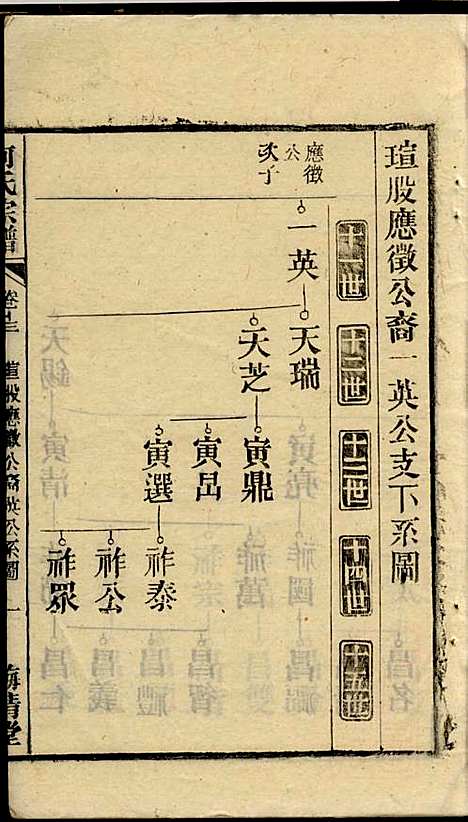 瑄股應徵公裔一英公支下系圖
十一世
十二世
十三世
十四世
十五世
應徵
公
次子
一英
天瑞
天芝
寅鼎
寅喦
寅選
祚泰
祚公
祚眾
何氏宗譜
卷之三
瑄股應徵公裔英公系圖
一